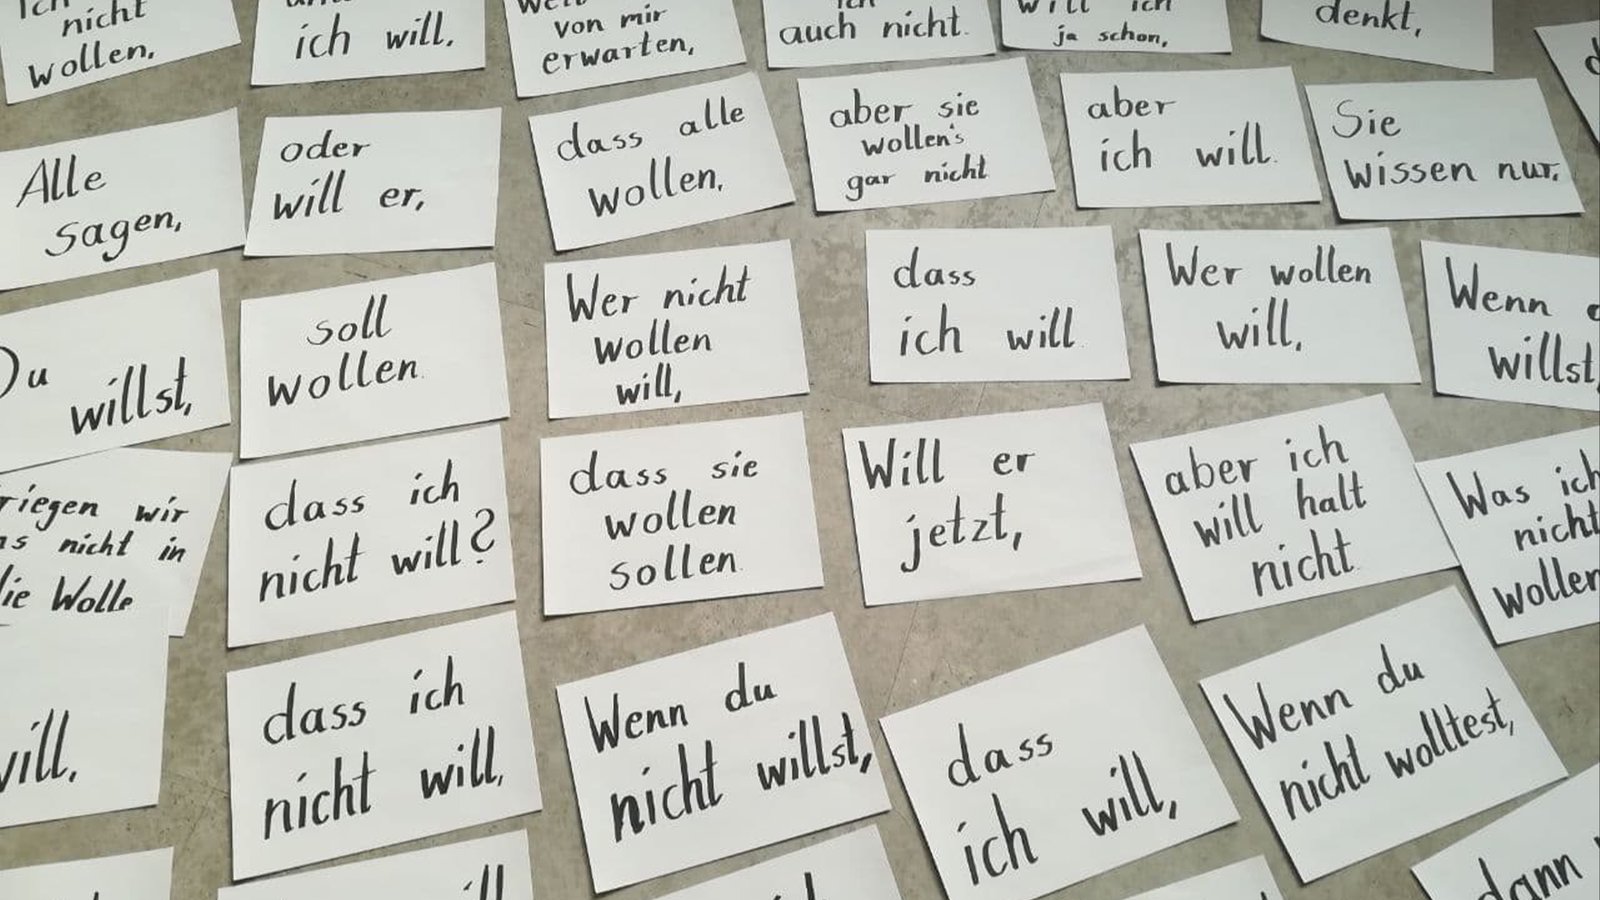 nicht
wollen,
ich will.
von mir
erwarten,
auch nicht.
will ich
ja schon,
denkt,
Alle
sagen,
oder
will er,
dass alle
wollen,
aber sie
wollen's
gar nicht
aber
ich will.
Sie
wissen nur,
Du
willst,
soll
wollen.
Wer nicht
wollen
will,
dass
ich will
Wer wollen
will,
Wenn
willst,
wir
nicht in
Wolle
dass ich
nicht will?
dass sie
wollen
sollen.
Will er
jetzt,
aber ich
will halt
nicht.
Was ich
nicht
wollen
will.
dass ich
nicht will,
Wenn du
nicht willst,
dass
ich will,
Wenn du
nicht wolltest,
dann